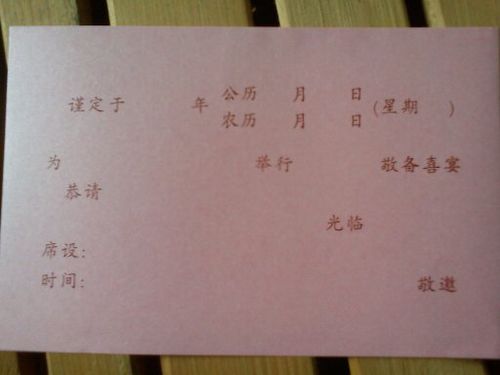 谨定于 年 公历 月 日 (星期 )
农历 月 日
为 举行 敬备喜宴
恭请
光临
席设:
时间: 敬邀